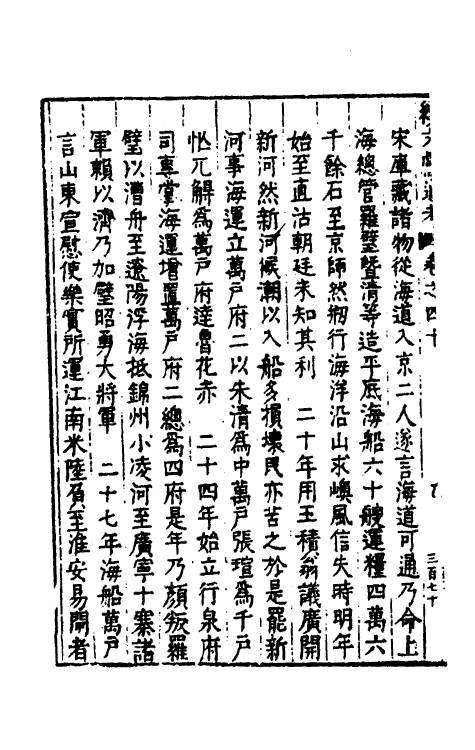 續文獻通考 卷之四十 三百七十
宋庫藏諸物從海道入京二人遂言海道可通乃命上
海總管羅璧暨清等造平底海船六十艘運糧四萬六
千餘石至京師然刱行海洋沿山求嶼風信失時明年
始至直沽朝廷未知其利 二十年用王積翁議廣開
新河然新河候潮以入船多損壞民亦苦之於是罷新
河事海運立萬戶府二以朱清為中萬戶張瑄為千戶
忙兀解為萬戶府達魯花赤 二十四年始立行泉府
司專掌海運增置萬戶府二總為四府是年乃顏叛羅
璧以漕舟至遼陽浮海抵錦州小凌河至廣寧十寨諸
軍賴以濟乃加璧昭勇大將軍 二十七年海船萬戶
言山東宣慰使樂實所運江南米陸負至淮安易閘者